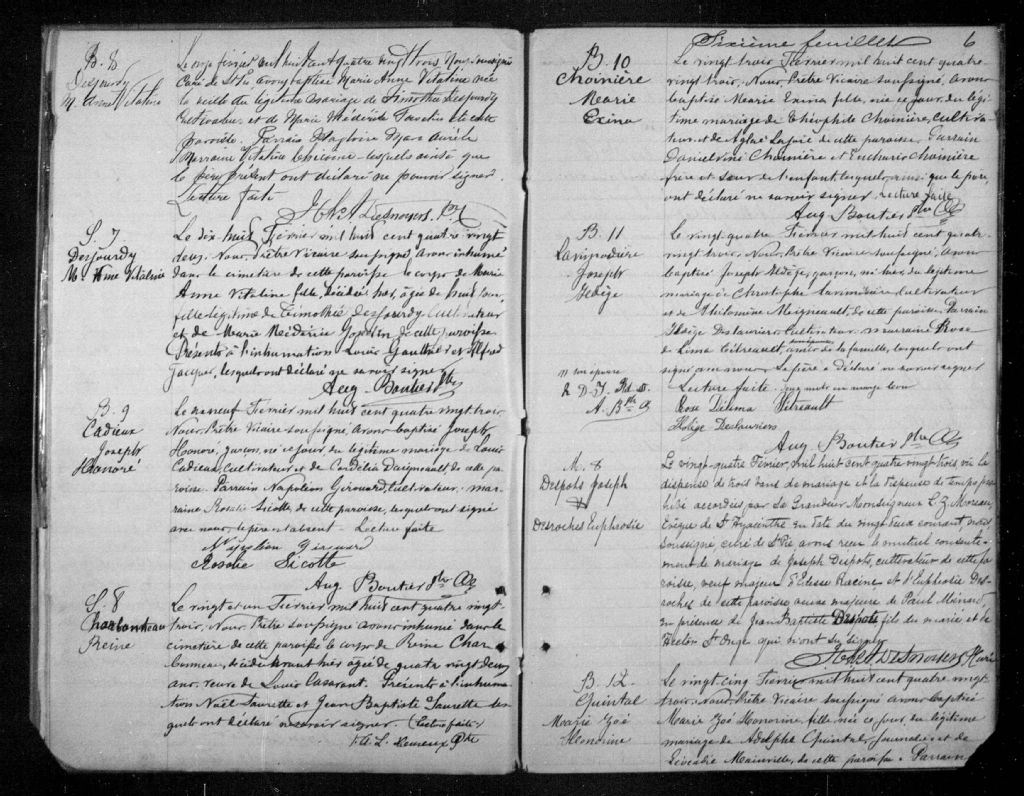 B. 8
Desjourdy
M. Anne Vitaline
Le onze février mil huit cent quatre vingt trois Nous soussigné
Curé de St Pie avons baptisé Marie Anne Vitaline née
la veille du légitime mariage de Timothé Desjourdy
cultivateur et de Marie Méderide de cette
paroisse. Parrain Magloire Marc Aurèle
Marraine Vitaline lesquels ainsi que
le père présent ont déclaré ne pouvoir signer.
Lecture faite
Desnoyers Ptre
S. 7
Desjourdy
M. Anne Vitaline
Le dix huit Février mil huit cent quatre vingt
Nous, Prêtre Vicaire soussigné, avons inhumé
dans le cimetière de cette paroisse le corps de Marie
Anne Vitaline fille, décédée hier, âgée de huit jours
fille légitime de Timothée Desjourdy Cultivateur
et de Marie Méderise de cette paroisse
Présents à l'inhumation Louis Gauthier et Alfred
Jacques, lesquels ont déclaré ne savoir signer
Aug Boutier Ptre
B. 9
Cadieux
Joseph
Honoré
Le dixneuf Février mil huit cent quatre vingt trois,
Nous, Prêtre Vicaire soussigné, avons baptisé Joseph
Honoré, garçon, né ce jour du légitime mariage de Louis
Cadieux, Cultivateur et de Cordélia Daigneault de cette pa
roisse. Parrain Napoléon Girouard, Cultivateur, mar
raine Rosalie Sicotte, de cette paroisse, lesquels ont signé
avec nous, le père absent - Lecture faite
Napoléon Girouard
Rosalie Sicotte
Aug Boutier Ptre
S. 8
Charbonneau
Reine
Le vingt et un Février mil huit cent quatre vingt
trois, Nous, Prêtre soussigné avons inhumé dans le
cimetière de cette paroisse le corps de Reine Char
bonneau, décédée avant hier âgée de quatre vingt deux
ans, veuve de Louis Casavant. Présents à l'inhuma
tion Noël Paurette et Jean Baptiste Paurette les
quels ont déclaré ne savoir signer. (Lecture faite)
L. Lemieux Ptre
Sixième feuillet 6
B. 10
Choinière
Marie
Exina
Le vingt trois Février mil huit cent quatre
vingt trois, Nous, Prêtre Vicaire soussigné, avons
baptisé Marie Exina fille, née ce jour, du légi
time mariage de Théophile Choinière, Cultiva
teur, et de Aglaé Laforé de cette paroisse. Parrain
Choinière et Choinière
frère et soeur de l'enfant, lesquels, ainsi que le père,
ont déclaré ne savoir signer. Lecture faite
Aug Boutier Ptre
B. 11
Larivodière
Joseph
Hedège
Le vingt quatre Février mil huit cent quatre
vingt trois, Nous, Prêtre Vicaire soussigné, avons
baptisé Joseph Hedège, garçon, né hier, du légitime
mariage de Christophe Cultivateur
et de Philomène Migneault, de cette paroisse. Parrain
Hedège Deslauriers Cultivateur, marraine Rose
de Lima amis de la famille, lesquels ont
signé avec nous. Le père a déclaré ne savoir signer
Lecture faite.
Rose Délima
Hedège Deslauriers
Aug Boutier Ptre
M. 8
Despots Joseph
&
Desroches Euphrosie
Le vingt quatre Février, mil huit cent quatre vingt trois, vu la
dispense de trois bans de mariage et la dispense de temps pro
hibé accordées par Sa Grandeur Monseigneur L. Z. Moreau
Evêque de St Hyacinthe en date du vingt deux courant, nous
soussigné, curé de St Pie, avons reçu le mutuel consente
ment de mariage de Joseph Despots, cultivateur de cette pa
roisse, veuf majeur d'Elise Racine et d'Euphrosie Des
roches de cette paroisse veuve majeure de Paul Ménard,
en présence de Jean Baptiste Despots fils du marié et de
Hector St Onge qui n'ont su signer
Desnoyers
B. 12
Quintal
Marie Zoé
Honorine
Le vingt cinq Février mil huit cent quatre vingt
trois, Nous, Prêtre Vicaire soussigné avons baptisé
Marie Zoé Honorine fille née ce jour du légitime
mariage de Adolphe Quintal, journalier et de
Léocadie Mainville, de cette paroisse. Parrain